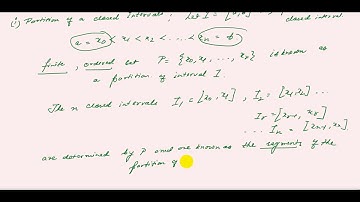 (i) Partition of a closed Intervals : Let I = [a, b] closed interval.
a = x0 < x1 < x2 < .... < xn = b
finite, ordered set P = {x0, x1, ..., xr} is known as
a partition of interval I.
The n closed intervals I1 = [x0, x1], I2 = [x1, x2] ...
Ir = [xr-1, xr]
... In = [xn-1, xn]
are determined by P and are known as the segments of the
partition of